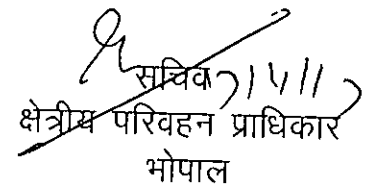 सचिव
क्षेत्रीय परिवहन प्राधिकार
भोपाल